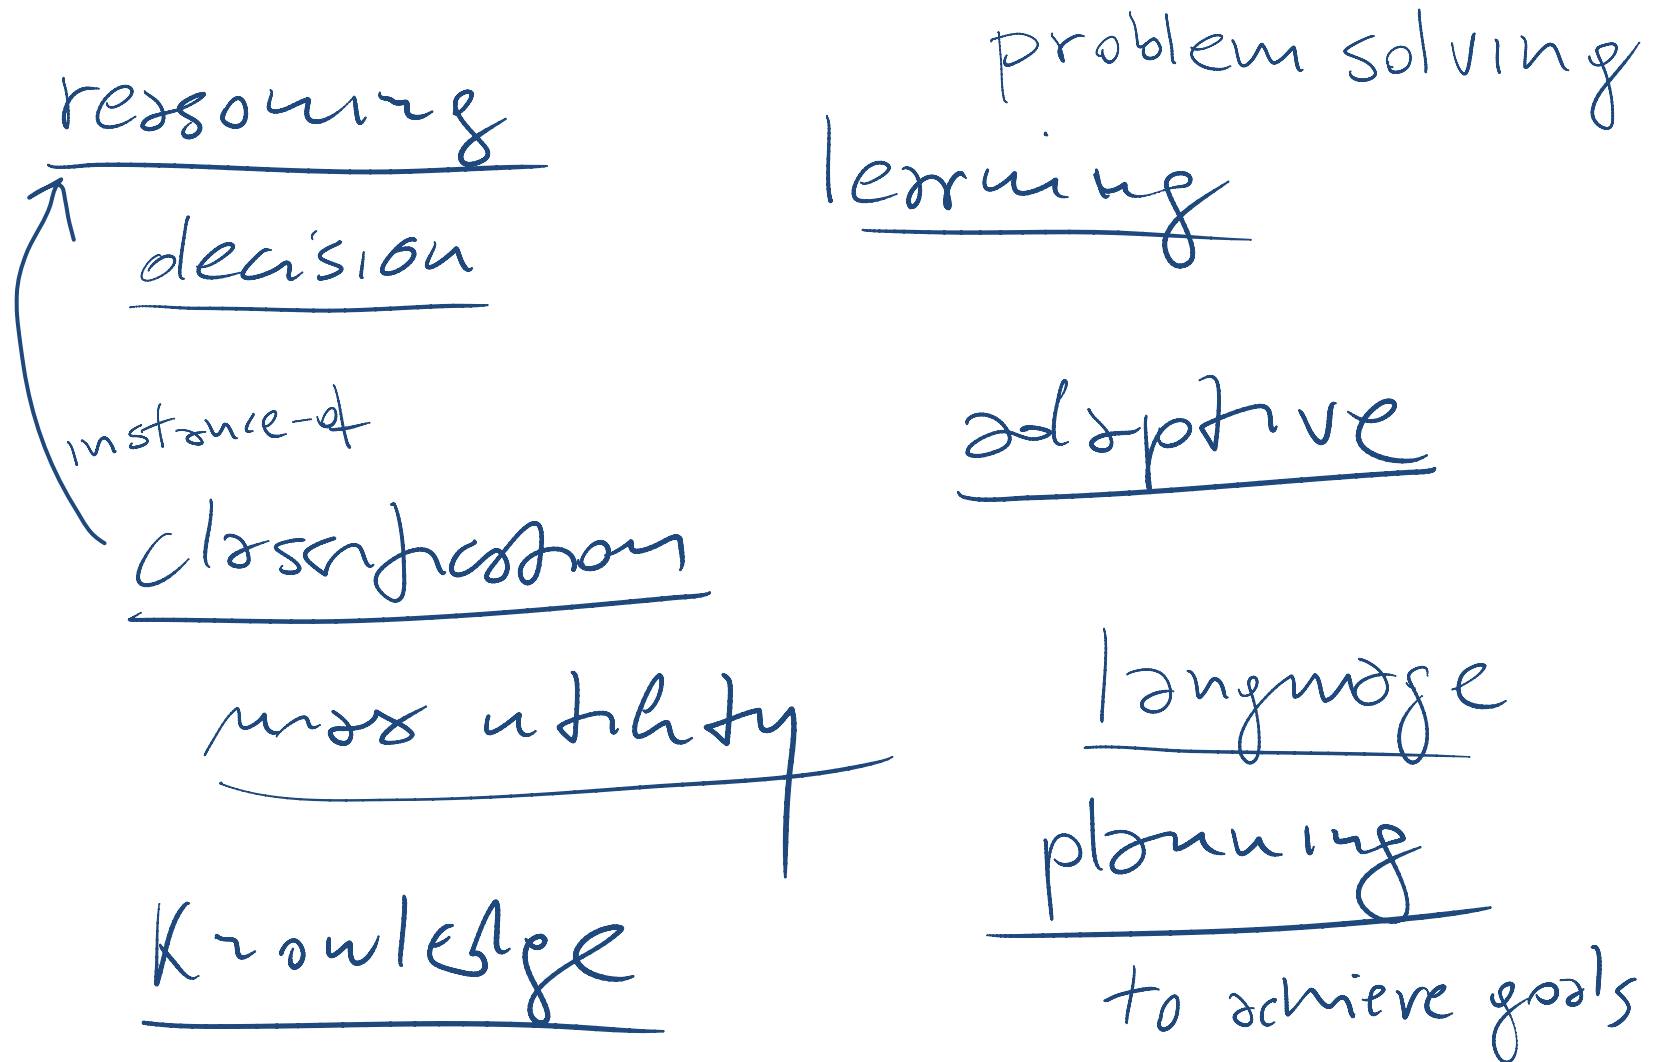 reasoning
decision
instance-of
classification
max utility
Knowledge
problem solving
learning
adaptive
language
planning
to achieve goals